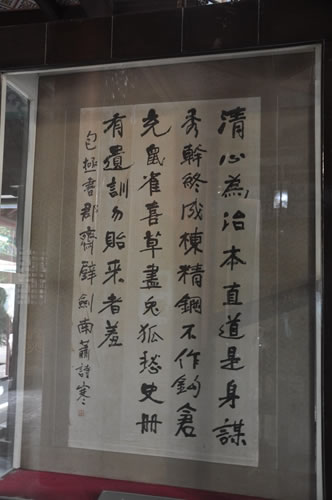 清心為治本直道是身謀
秀幹終成棟精鋼不作鈎倉
充鼠雀喜草盡兔狐愁史冊
有遺訓勿貽来者羞
包拯書郡齋壁劍南蕭寒